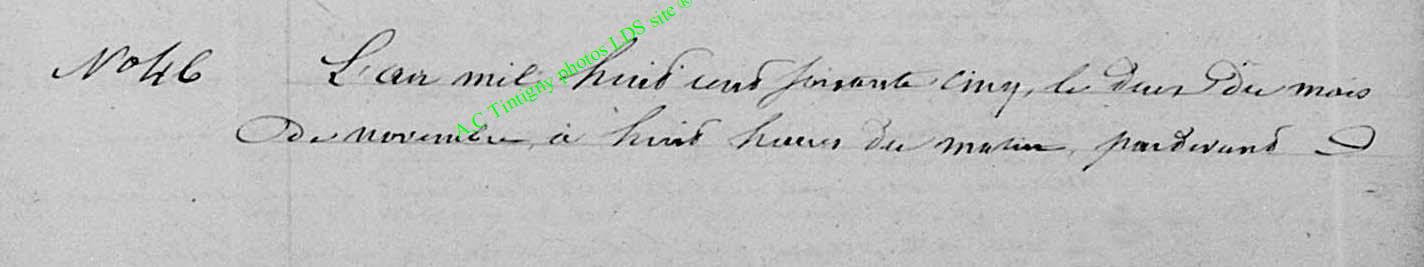 A C Tintigny photos LDS site ®
N° 46 L'an mil huit cent soixante cinq, le deux du mois
de novembre, à huit heures du matin, pardevant